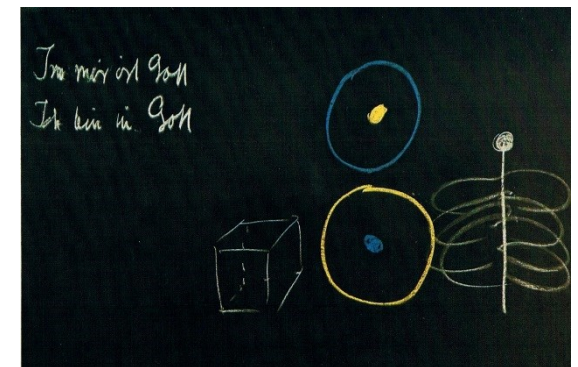 In mir ist Gott
Ich bin in Gott